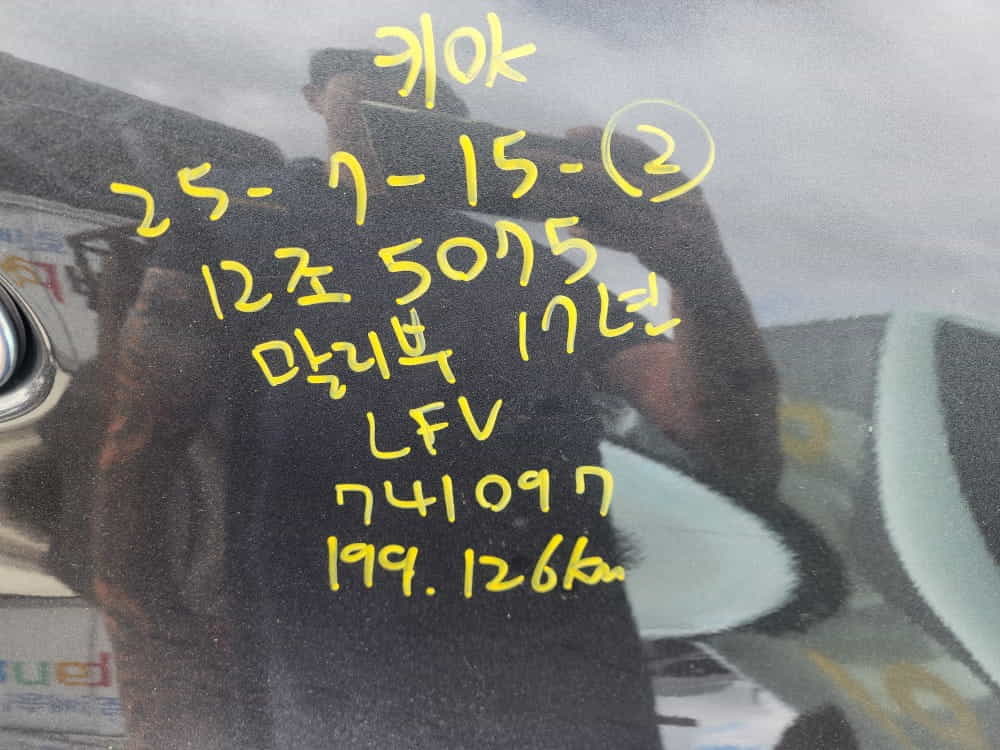 키OK
25-7-15-②
12조 5075
말리부 17년
LFV
741097
199.126km